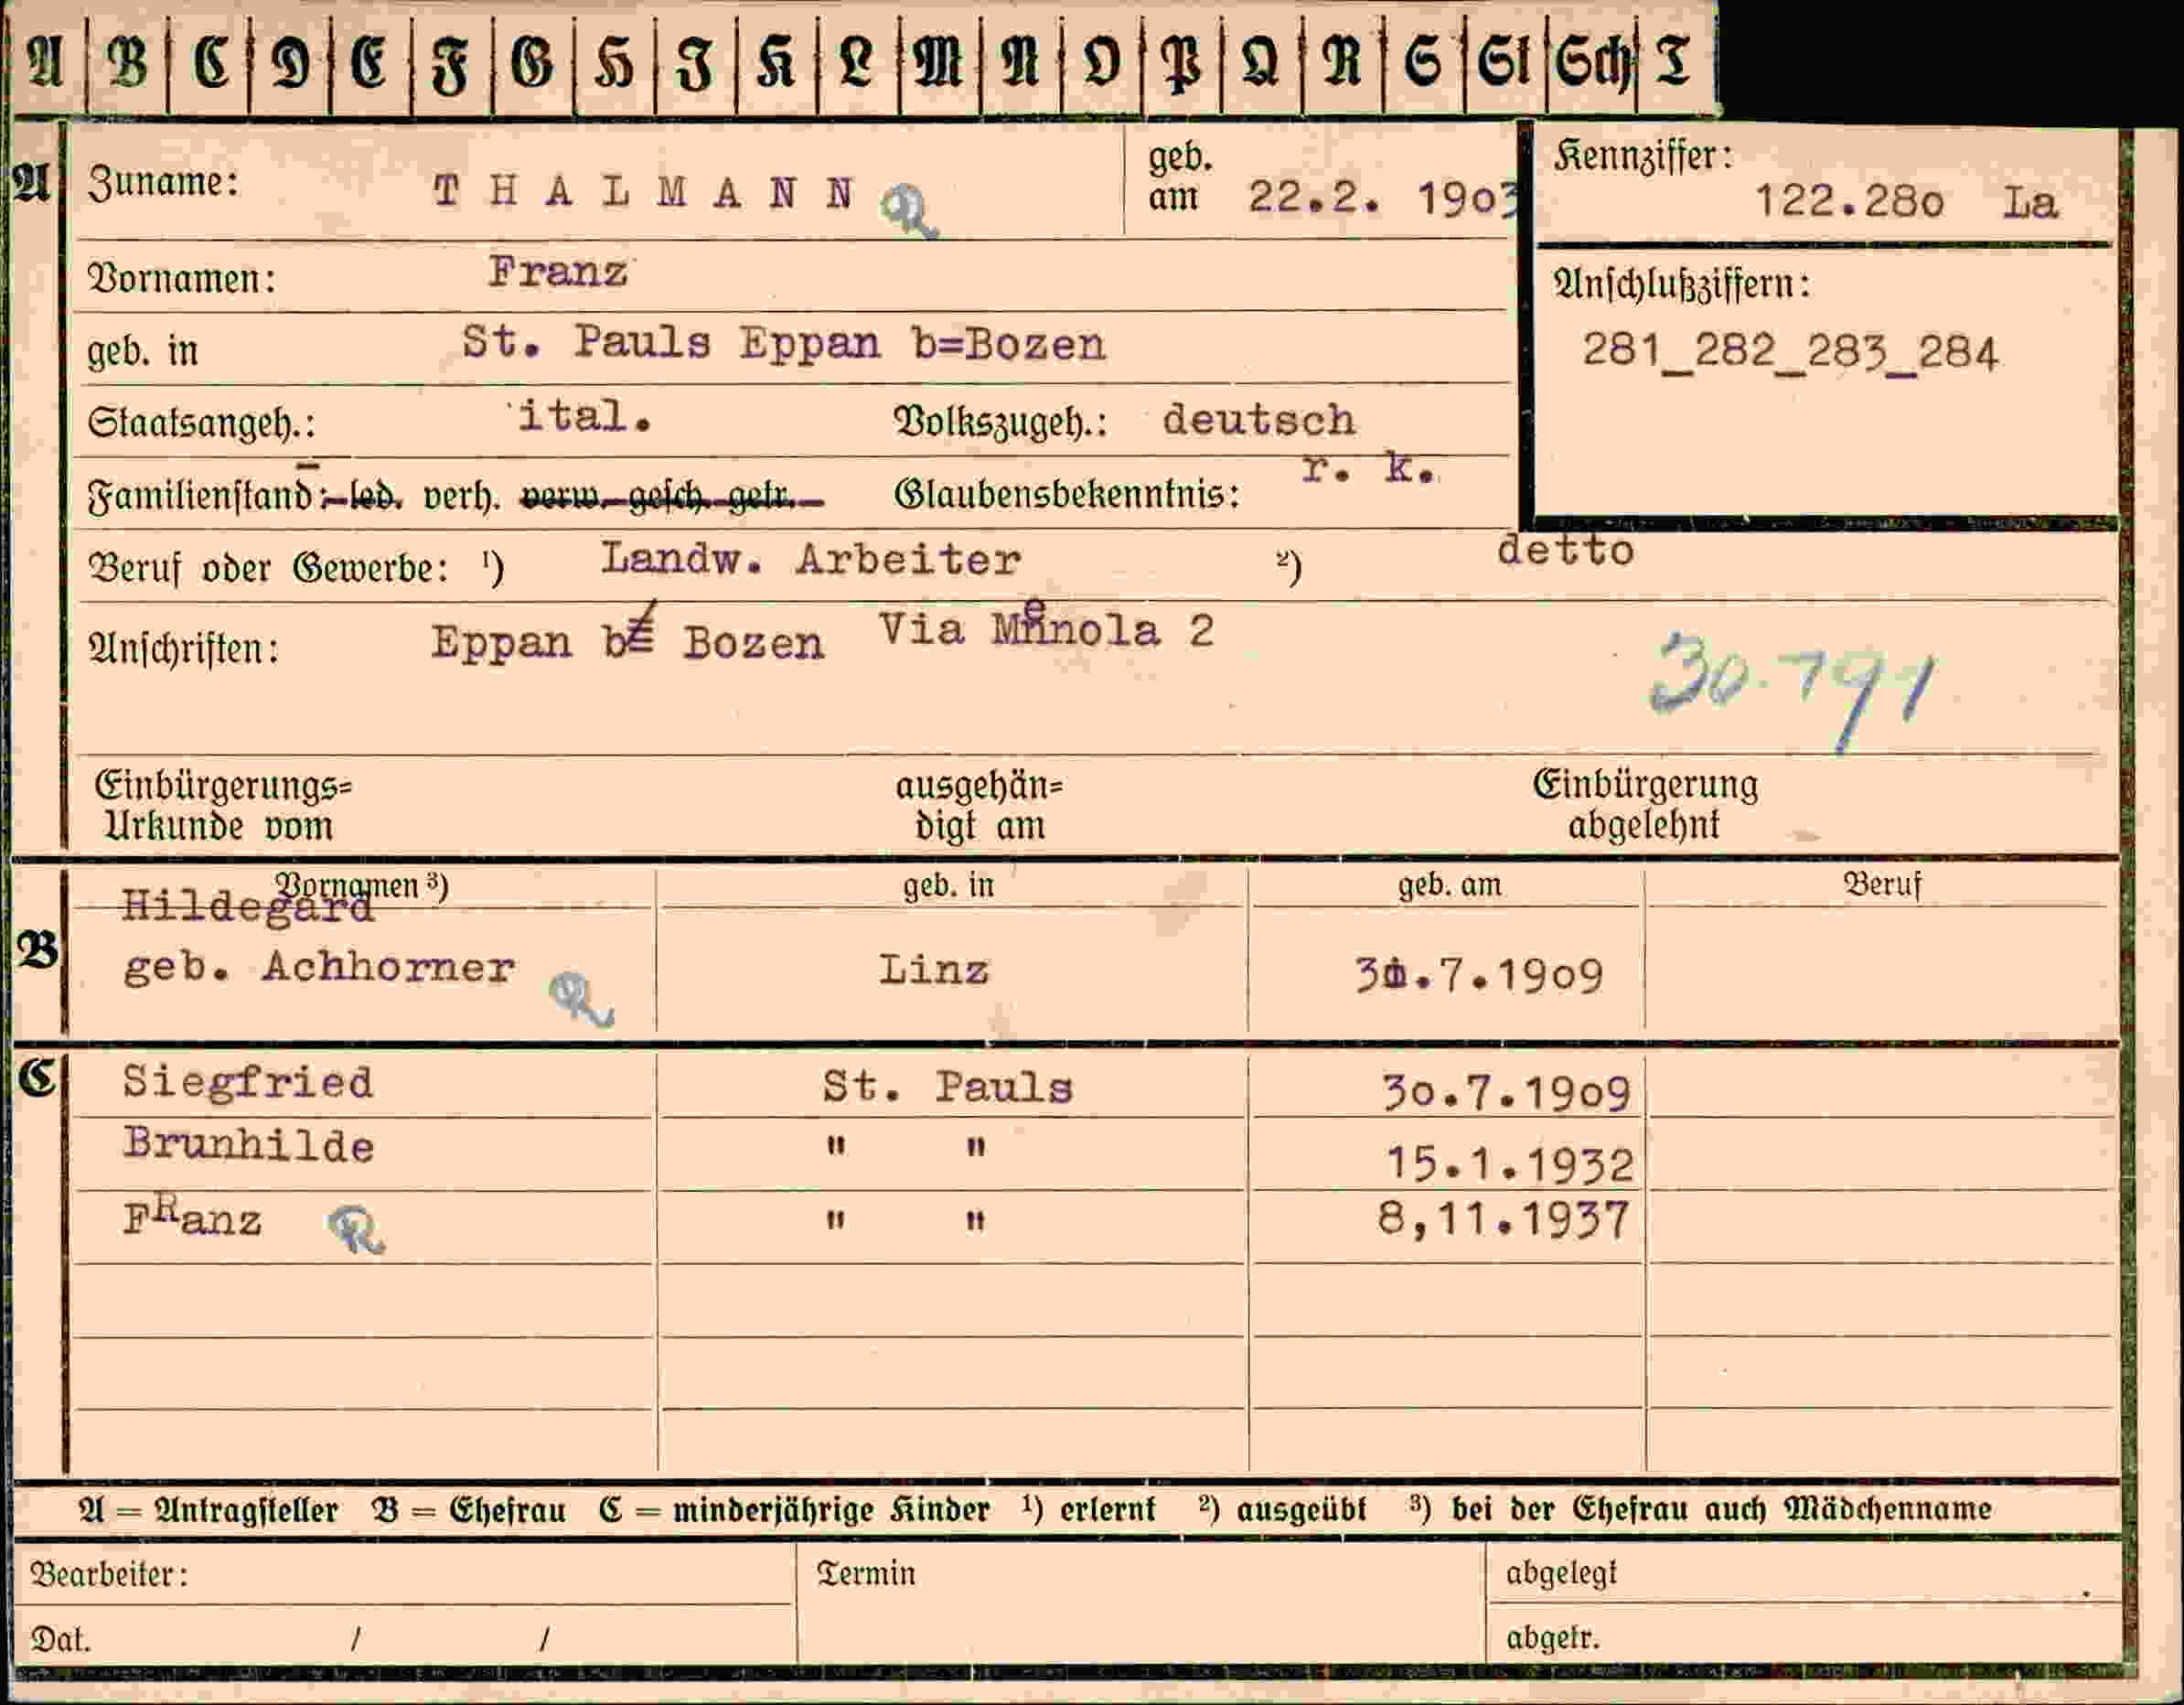 A B C D E F G H J K L M N O P Q R S St Sch T
A Zuname: THALMANN geb. am 22.2. 19o3 Kennziffer: 122.28o La
Vornamen: Franz
geb. in St. Pauls Eppan b=Bozen
Anschlußziffern:
281_282_283_284
Staatsangeh.: ital. Volkszugeh.: deutsch
Familienstand: led. verh. verw. gesch. getr. Glaubensbekenntnis: r. k.
Beruf oder Gewerbe: 1) Landw. Arbeiter 2) detto
Anschriften: Eppan b Bozen Via Menola 2
30.791
Einbürgerungs= Urkunde vom ausgehän= digt am Einbürgerung abgelehnt
B Vornamen 3) geb. in geb. am Beruf
Hildegard
geb. Achhorner Linz .7.19o9
C Siegfried St. Pauls 3o.7.19o9
Brunhilde " " 15.1.1932
FRanz " " 8,11.1937
A = Antragsteller B = Ehefrau C = minderjährige Kinder 1) erlernt 2) ausgeübt 3) bei der Ehefrau auch Mädchenname
Bearbeiter: Termin abgelegt
Dat. / / abgetr.